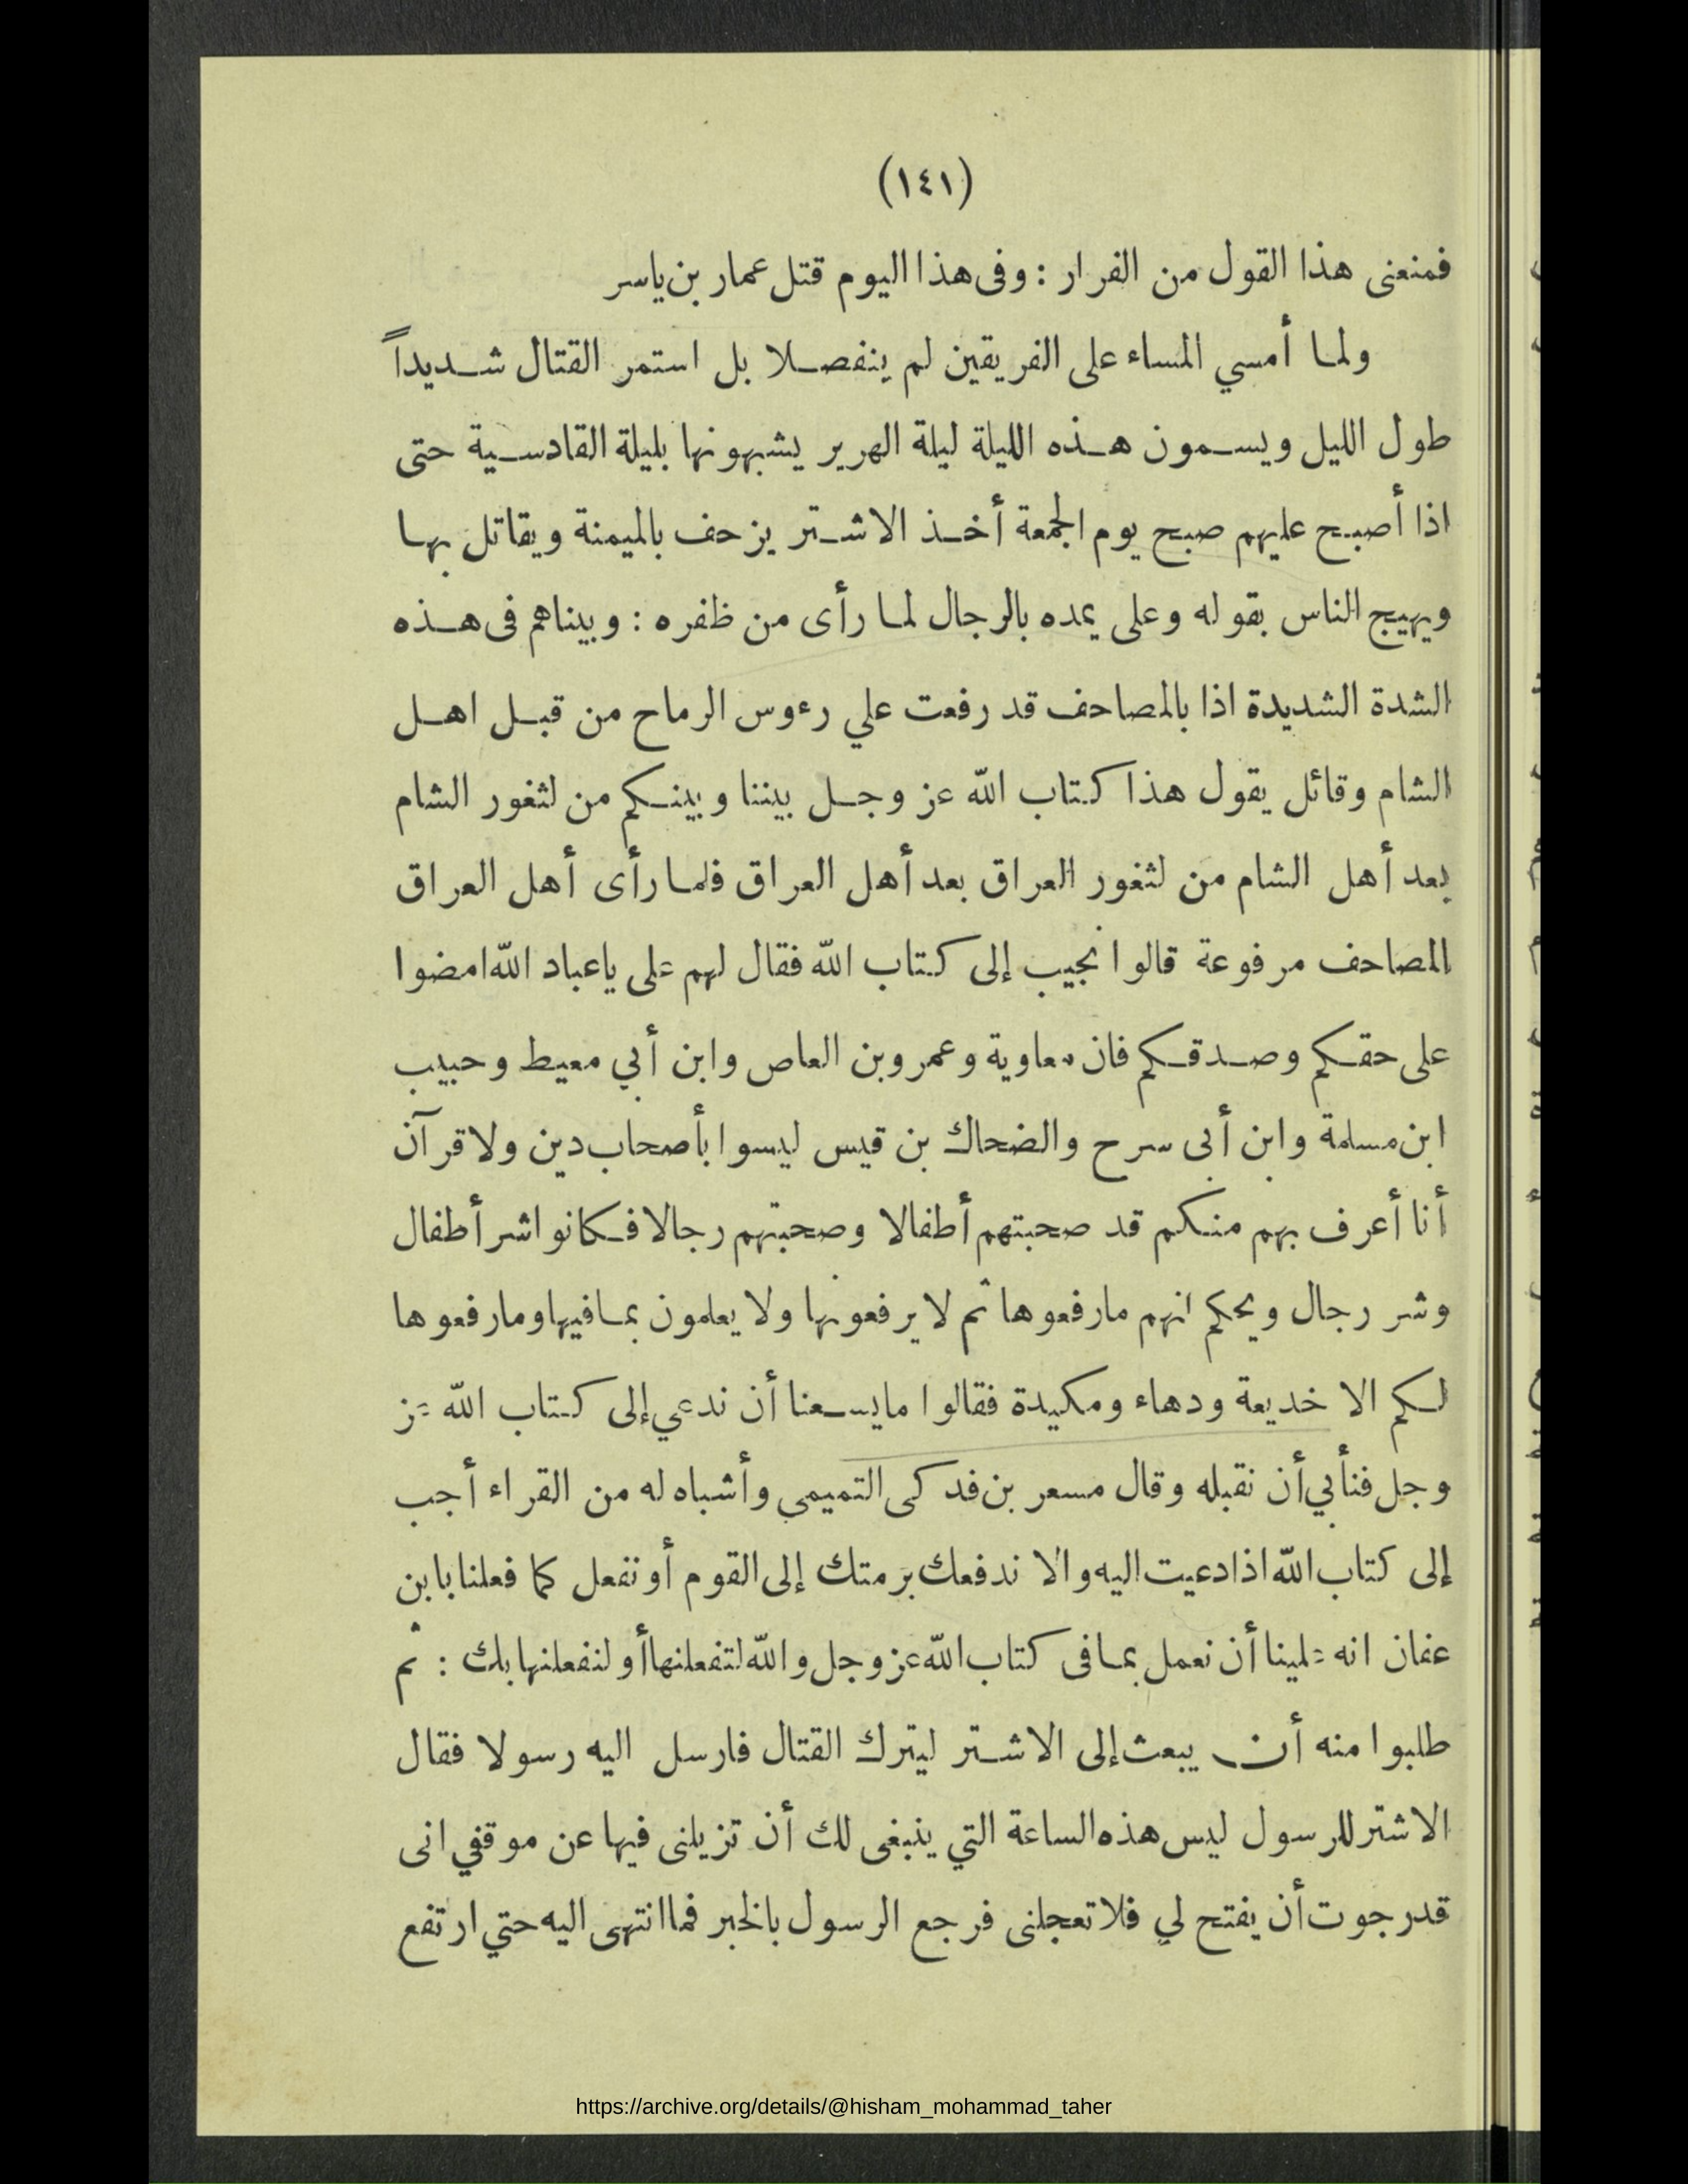 (١٤١)
فمنعنى هذا القول من الفرار : وفى هذا اليوم قتل عمار بن ياسر
ولما أمسي المساء على الفريقين لم ينفصلا بل استمر القتال شديداً
طول الليل ويسمون هذه الليلة ليلة الهرير يشبهونها بليلة القادسية حتى
اذا أصبح عليهم صبح يوم الجمعة أخذ الاشتر يزحف بالميمنة ويقاتل بها
ويهيج الناس بقوله وعلى يمده بالرجال لما رأى من ظفره : وبيناهم فى هذه
الشدة الشديدة اذا بالمصاحف قد رفعت علي رءوس الرماح من قبل اهل
الشام وقائل يقول هذا كتاب الله عز وجل بيننا وبينكم من لثغور الشام
بعد أهل الشام من لثغور العراق بعد أهل العراق فلما رأى أهل العراق
المصاحف مرفوعة قالوا نجيب إلى كتاب الله فقال لهم على ياعباد الله امضوا
على حقكم وصدقكم فان معاوية وعمرو بن العاص وابن أبي معيط وحبيب
ابن مسلمة وابن أبى سرح والضحاك بن قيس ليسوا بأصحاب دين ولا قرآن
أنا أعرف بهم منكم قد صحبتهم أطفالا وصحبتهم رجالا فكانوا شر أطفال
وشر رجال ويحكم انهم مارفعوها ثم لا يرفعونها ولا يعلمون بما فيها ومارفعوها
لكم الا خديعة ودهاء ومكيدة فقالوا ما يسعنا أن ندعي إلى كتاب الله عز
وجل فنأبي أن نقبله وقال مسعر بن فدكى التميمي وأشباه له من القراء أجب
إلى كتاب الله اذا دعيت اليه والا ندفعك برمتك إلى القوم أو نفعل كما فعلنا بابن
عفان انه علينا أن نعمل بما فى كتاب الله عز وجل والله لتفعلنها أو لنفعلنها بك : ثم
طلبوا منه أن يبعث إلى الاشتر ليترك القتال فارسل اليه رسولا فقال
الاشتر للرسول ليس هذه الساعة التي ينبغى لك أن تزيلنى فيها عن موقفي انى
قد رجوت أن يفتح لي فلا تعجلنى فرجع الرسول بالخبر فما انتهى اليه حتي ارتفع
https://archive.org/details/@hisham_mohammad_taher